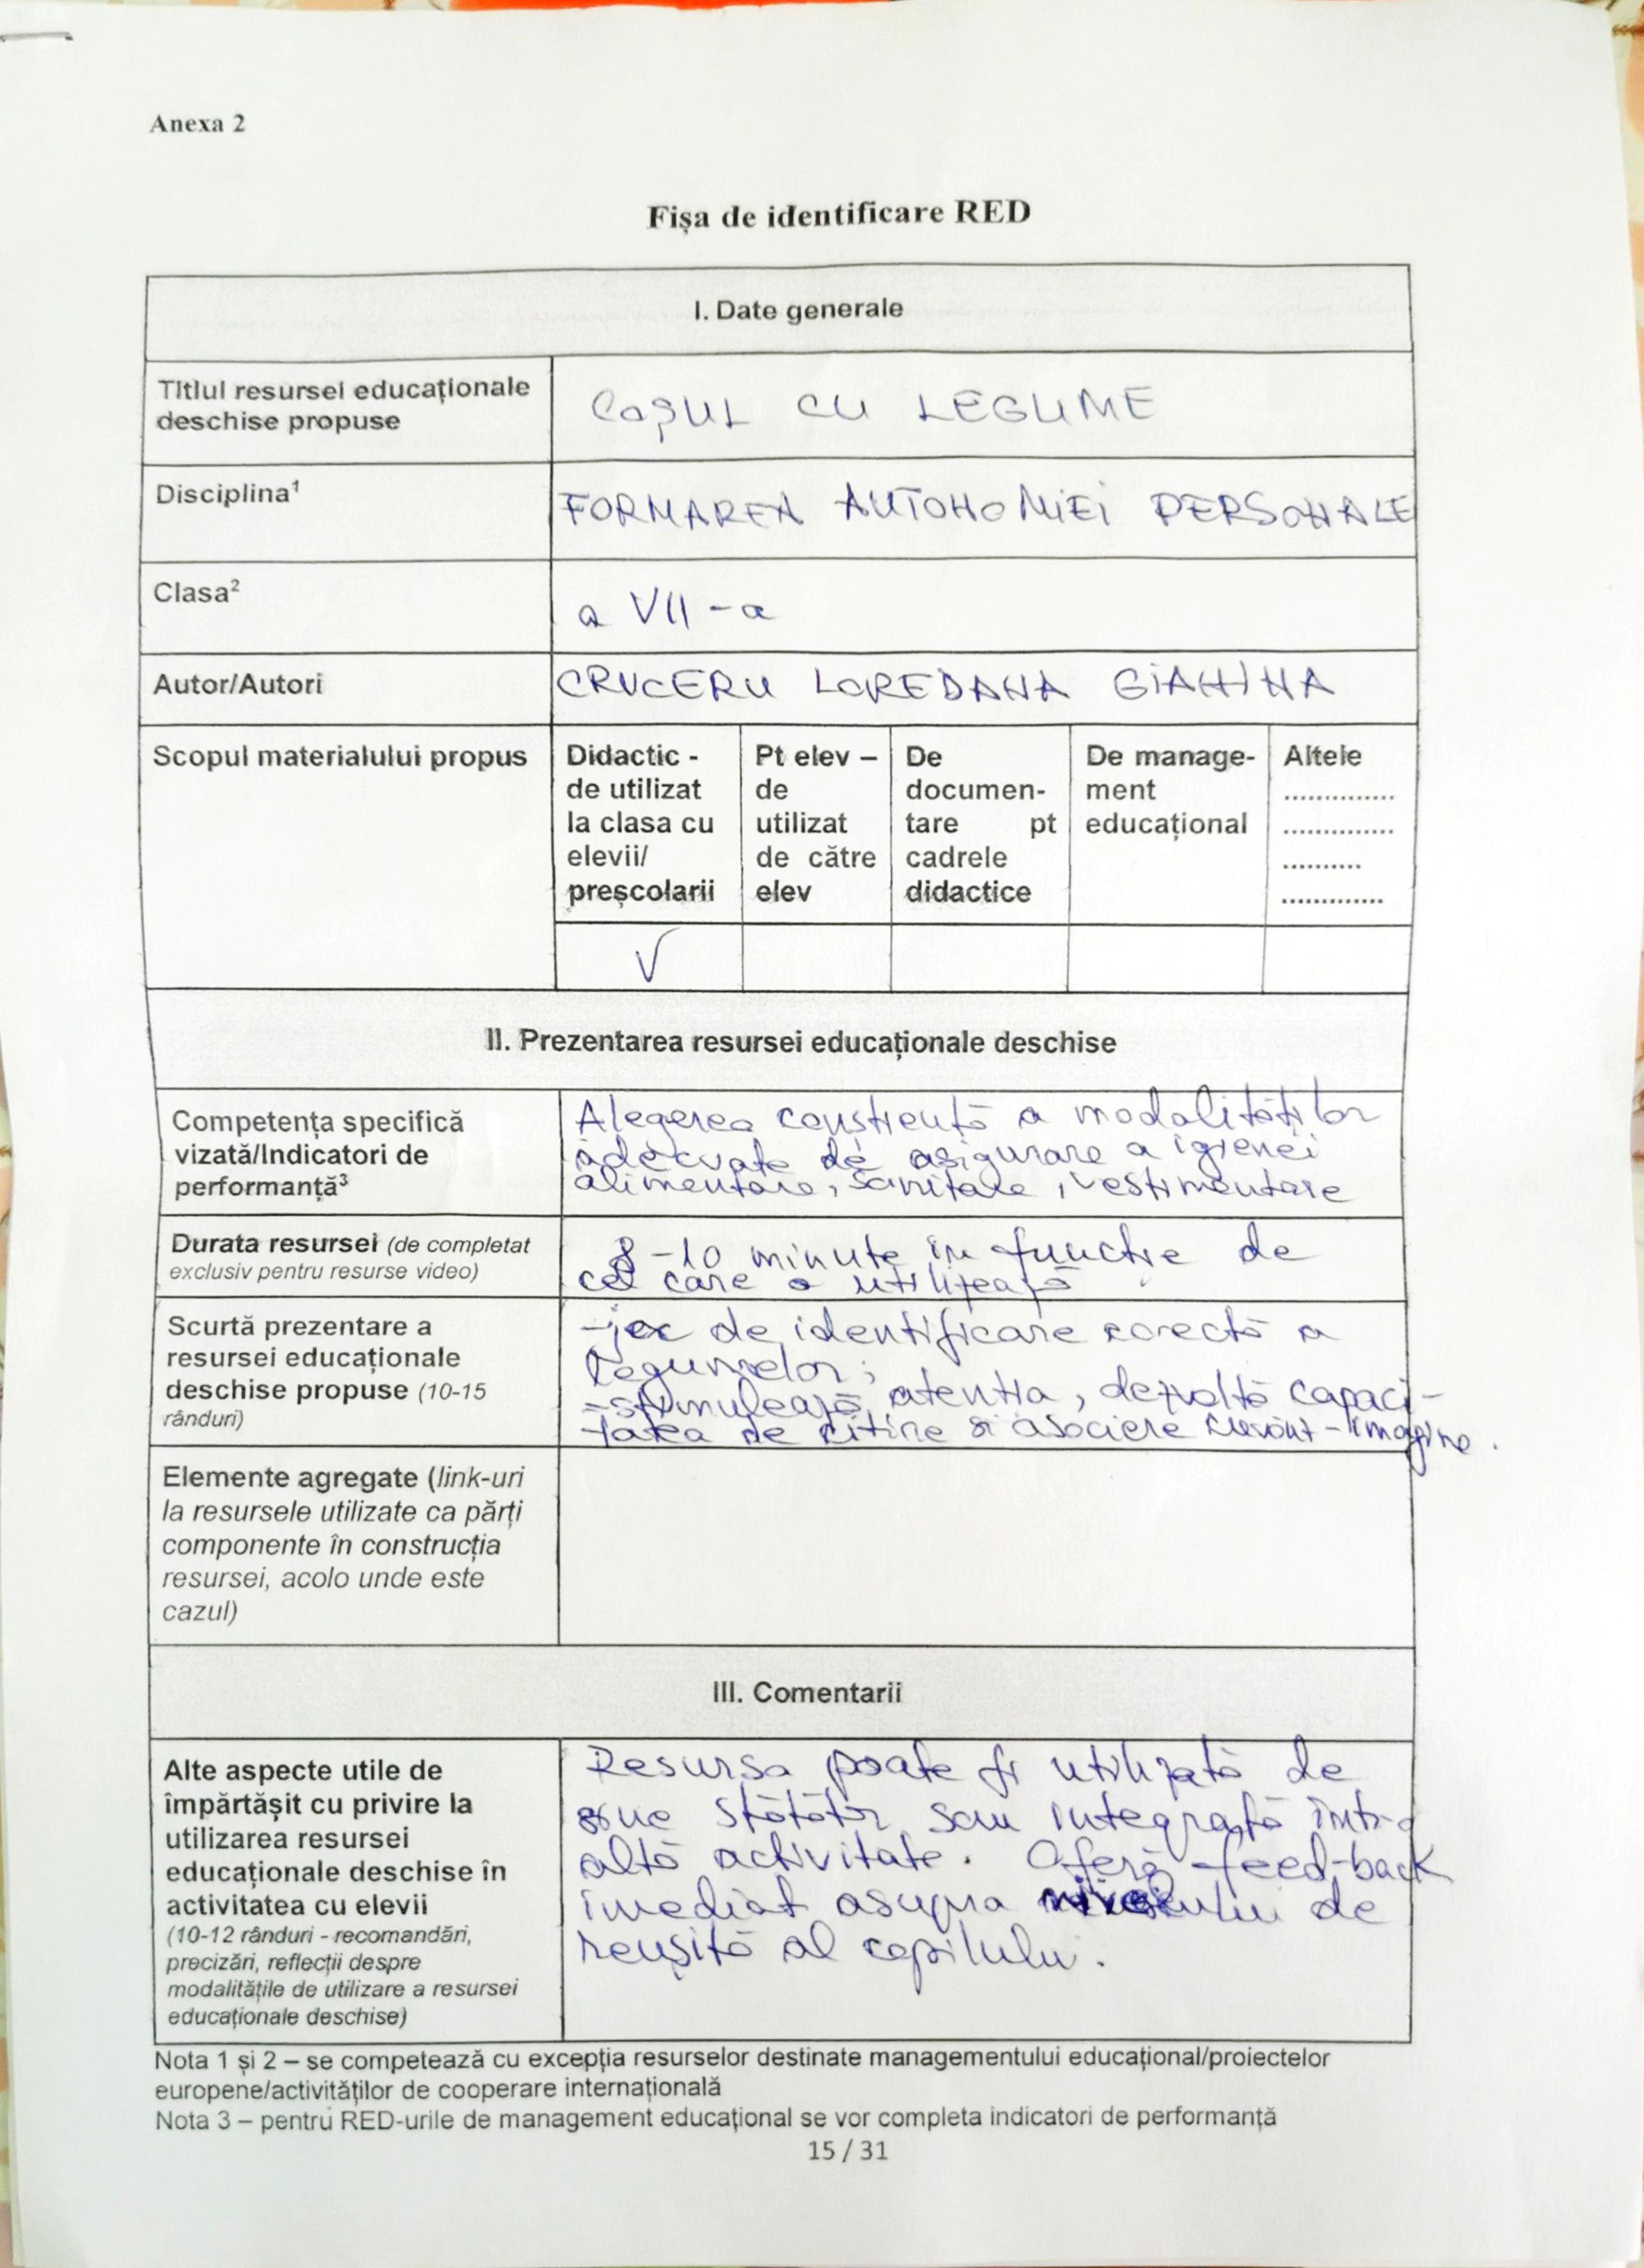 Anexa 2
Fișa de identificare RED
I. Date generale
Titlul resursei educaționale
deschise propuse
Coșul cu LEGUME
Disciplina¹
FORMAREA AUTONOMIEI PERSONALE
Clasa²
a VII-a
Autor/Autori
CRUCERU LOREDANA GIANINA
Scopul materialului propus
Didactic -
de utilizat
la clasa cu
elevii/
preșcolarii
Pt elev –
de
utilizat
de către
elev
De
documen-
tare pt
cadrele
didactice
De manage-
ment
educațional
Altele
..............
..............
..........
.............
√
II. Prezentarea resursei educaționale deschise
Competența specifică
vizată/Indicatori de
performanță³
Alegerea conștientă a modalităților
adecvate de asigurare a igienei
alimentare, sanitare, vestimentare
Durata resursei (de completat
exclusiv pentru resurse video)
8-10 minute în funcție de
cel care o utilizează
Scurtă prezentare a
resursei educaționale
deschise propuse (10-15
rânduri)
- joc de identificare corectă a
legumelor;
- stimulează atenția, dezvoltă capaci-
tatea de citire și asociere cuvânt-imagine.
Elemente agregate (link-uri
la resursele utilizate ca părți
componente în construcția
resursei, acolo unde este
cazul)
III. Comentarii
Alte aspecte utile de
împărtășit cu privire la
utilizarea resursei
educaționale deschise în
activitatea cu elevii
(10-12 rânduri - recomandări,
precizări, reflecții despre
modalitățile de utilizare a resursei
educaționale deschise)
Resursa poate fi utilizată de
sine stătător sau integrată într-o
altă activitate. Oferă feed-back
imediat asupra nivelului de
reușită al copilului.
Nota 1 și 2 – se competează cu excepția resurselor destinate managementului educațional/proiectelor
europene/activităților de cooperare internațională
Nota 3 – pentru RED-urile de management educațional se vor completa indicatori de performanță
15 / 31